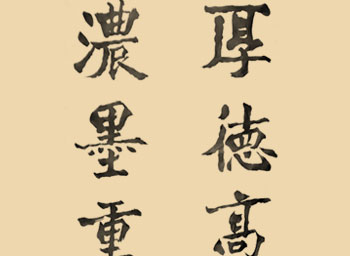 厚德高
濃墨重